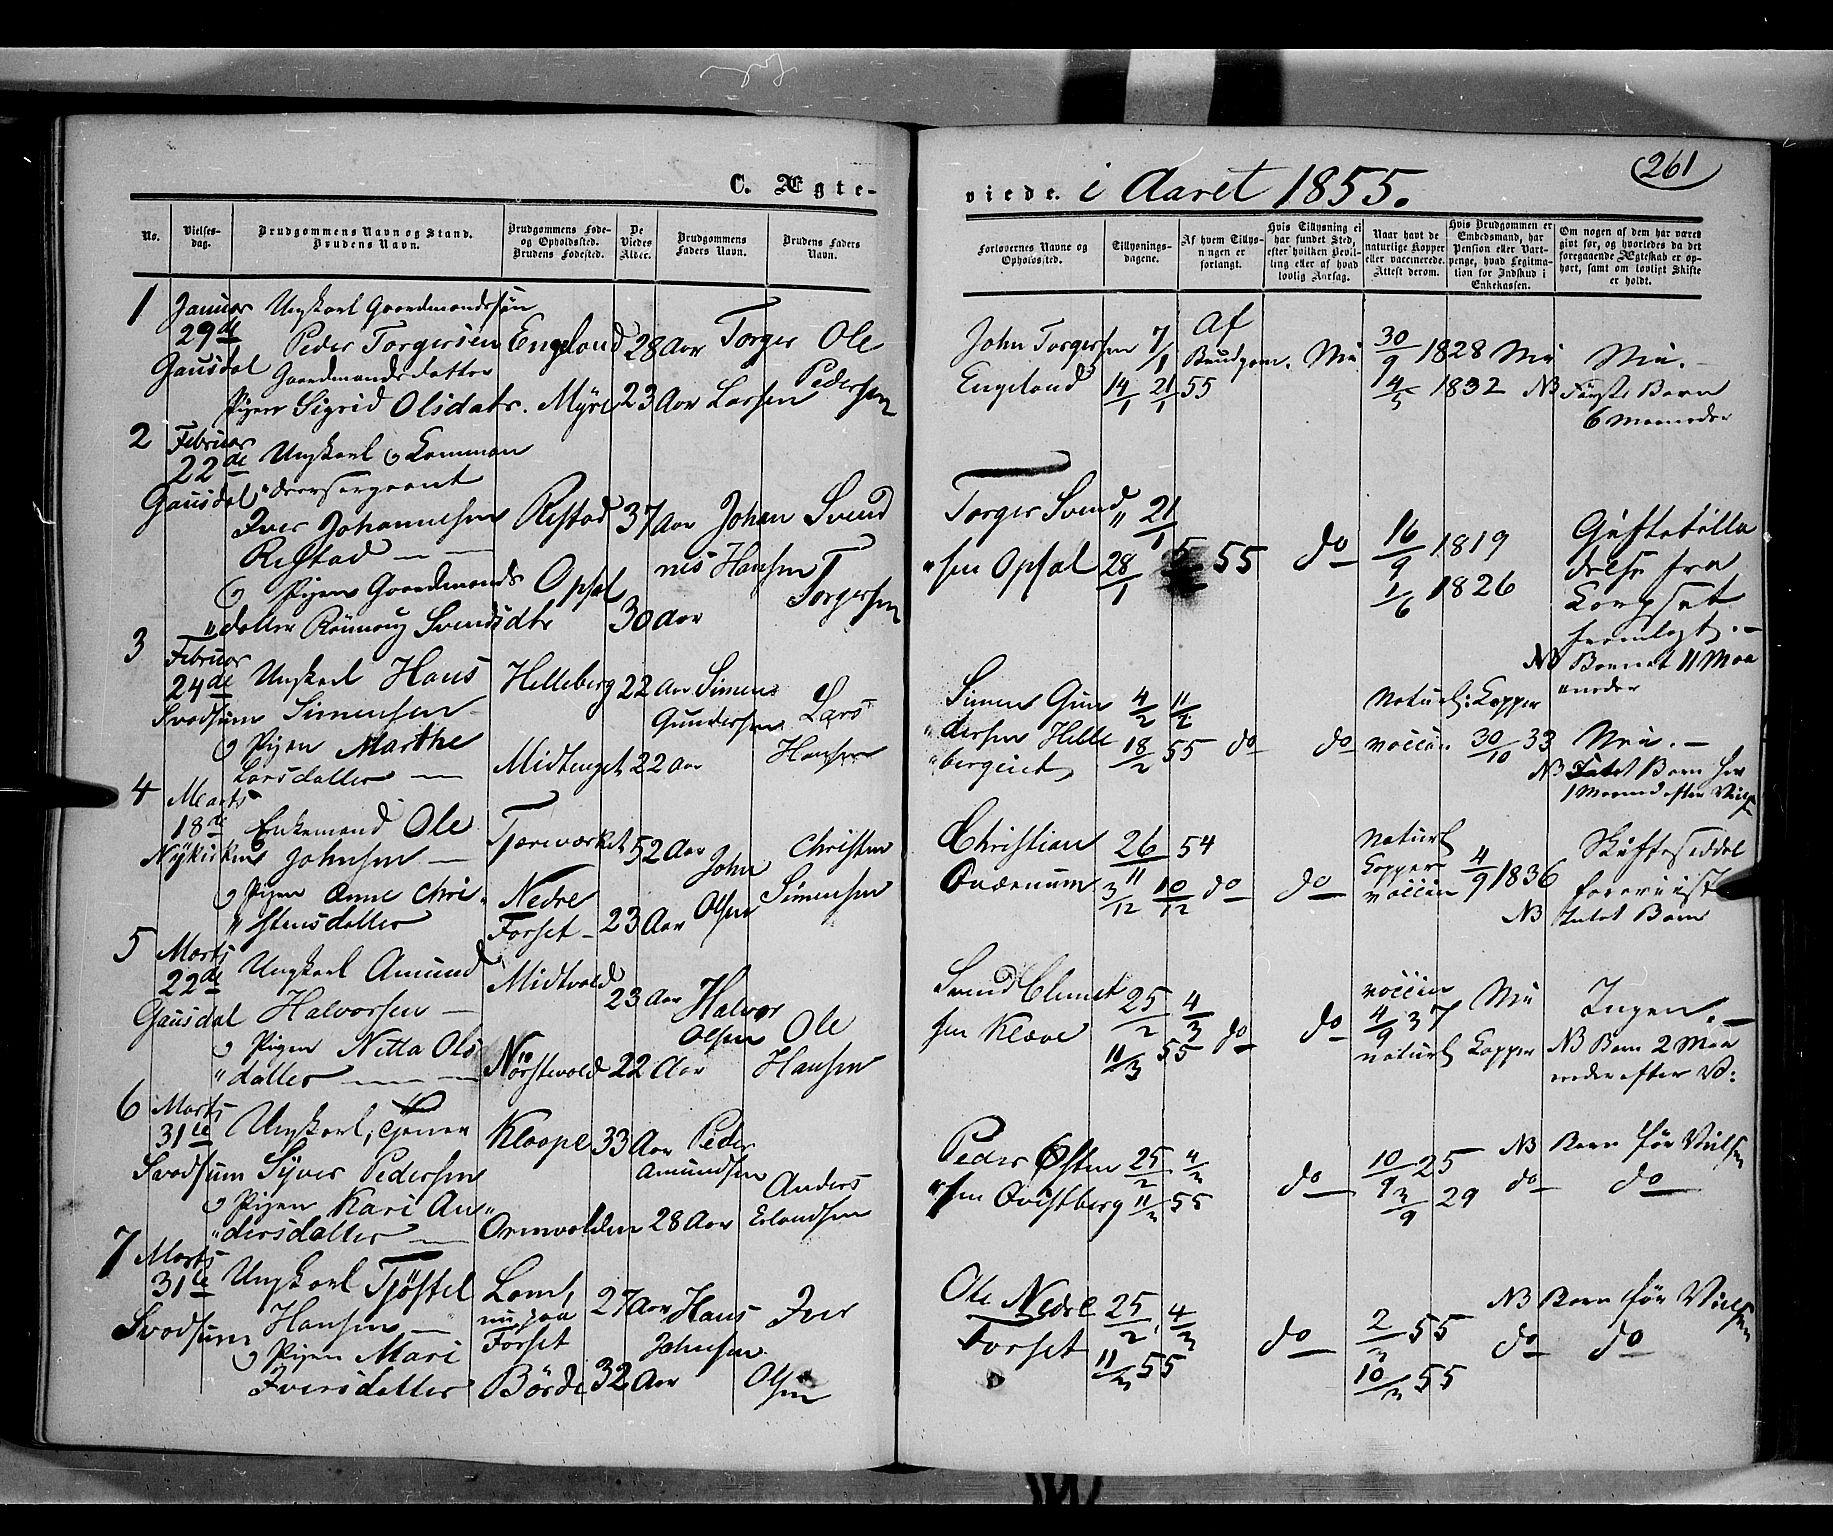 C. Ægte-
No.
Vielses-
dag.
Brudgommens Navn og Stand.
Brudens Navn.
Brudgommens Føde-
og Opholdssted.
Brudens Fødested.
De
Viedes
Alder.
Brudgommens
Faders Navn.
Brudens Faders
Navn.
1 Januar Ungkarl Gaardmandssøn
29de Peder Torgersen Engeland 28 Aar Torger Ole
Gausdal Gaardmandsdatter
Pigen Sigrid Olsdatr. Myre 23 Aar Larsen Pedersen
2 Februar
22de Ungkarl og Komman
Gausdal "deersergeant
Iver Johannesen Restad 37 Aar Johan Svend
Restad
nes Hansen Torgersen
og Pigen Gaardmands Opsal
"datter Rönnoug Svendsdtr 30 Aar
3 Februar
24de Ungkarl Hans Helleberg 22 Aar Simen Lars
Svadsum Simensen Gundersen
og Pigen Marthe Midtenget 22 Aar Hansen
Larsdatter
4 Marts
18de Enkemand Ole Tjæreværket 52 Aar John Christen
Nykirken Johnsen
og Pigen Anne Chri- Nedre Olsen Simensen
"stensdatter Forset 23 Aar
5 Marts
22de Ungkarl Amund Midtvold 23 Aar Halvor
Gausdal Halvorsen Olsen Ole
og Pigen Netta Ols Norstevold 22 Aar Hansen
"datter
6 Marts
31te Ungkarl, Kloope 33 Aar Peder
Svadsum Syver Pedersen Amundsen Anders
og Pigen Kari An" Ormvolden 28 Aar Erlandsen
"dersdatter
7 Marts
31te Ungkarl Tjöstel Lom, 27 Aar Hans Iver
Svadsum Hansen nu paa
Forset Johnsen
og Pigen Mari
Iversdatter Börde 32 Aar Olsen
viede. i Aaret 1855.
261
Forlovernes Navne og
Opholdssted.
Tillysnings-
dagene.
Af hvem Tillys-
ningen er
forlangt.
Hvis Tillysning ei
har fundet Sted,
efter hvilken Bevil-
ling eller af hvad
lovlig Aarsag.
Naar havt de
naturlige Kopper
eller vaccinerede.
Attest derom.
Hvis Brudgommen er
Embedsmand, har
Pension eller Vart-
penge, hvad Legitima-
tion for Indskud i
Enkekassen.
Om nogen af dem har været
gift før, og hvorledes da det
foregaaende Ægteskab er op-
hørt, samt om lovligt Skifte
er holdt.
John Torgersen 7/1 Af Brudgom. Nei 30/9 1828 Nei Nei.
Engeland 14/1 21/1 55 4/5 1832 NB Förste Barn
6 Maaneder
Torger Svend" 21/1
"sen Opsal 28/1 55 do 16/9 1819 Giftetilla
1/6 1826 delse fra
Korpset
fremlagt.
NB Barnet 11 Maa
"neder
Simen Gun 4/2 11/2 Naturl: Kopper
"dersen Helle 18/2 55 do do vaccin. 30/10 33 Nei.
"bergeiet NB Födt Barn før
1 Maaned efter Viels
Christian 26/11 54 Naturl Skifteseddel
Kopper 4/9 1836
Ovænum 3/12 10/12 do do vaccin foreviist
NB Intet Barn
Svend Clemet 25/2 4/3 vaccin Nei Ingen.
sen Klæve 11/3 55 do do 4/9 37
naturl Kopper NB Barn 2 Maa
neder efter V:
Peder Østen 25/2 4/3 10/9 25 NB Barn før Vielsen
"sen Qvistberg 11/3 55 do 3/9 29 do do
Ole Nedre 25/2, 4/3 2/3 55 NB Barn før Vielsen
Forset 11/3 55 do 10/3 55 do do